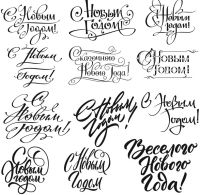 С Новым
Годом!
С Новым
Годом!
С Новым
Годом!
С Новым
Годом!
Сказочного
Нового Года!
С Новым
Годом!
С Новым
Годом!
С Новым
Годом!
С Новым
Годом!
С Новым
Годом!
С Новым
Годом!
Веселого
Нового
Года!